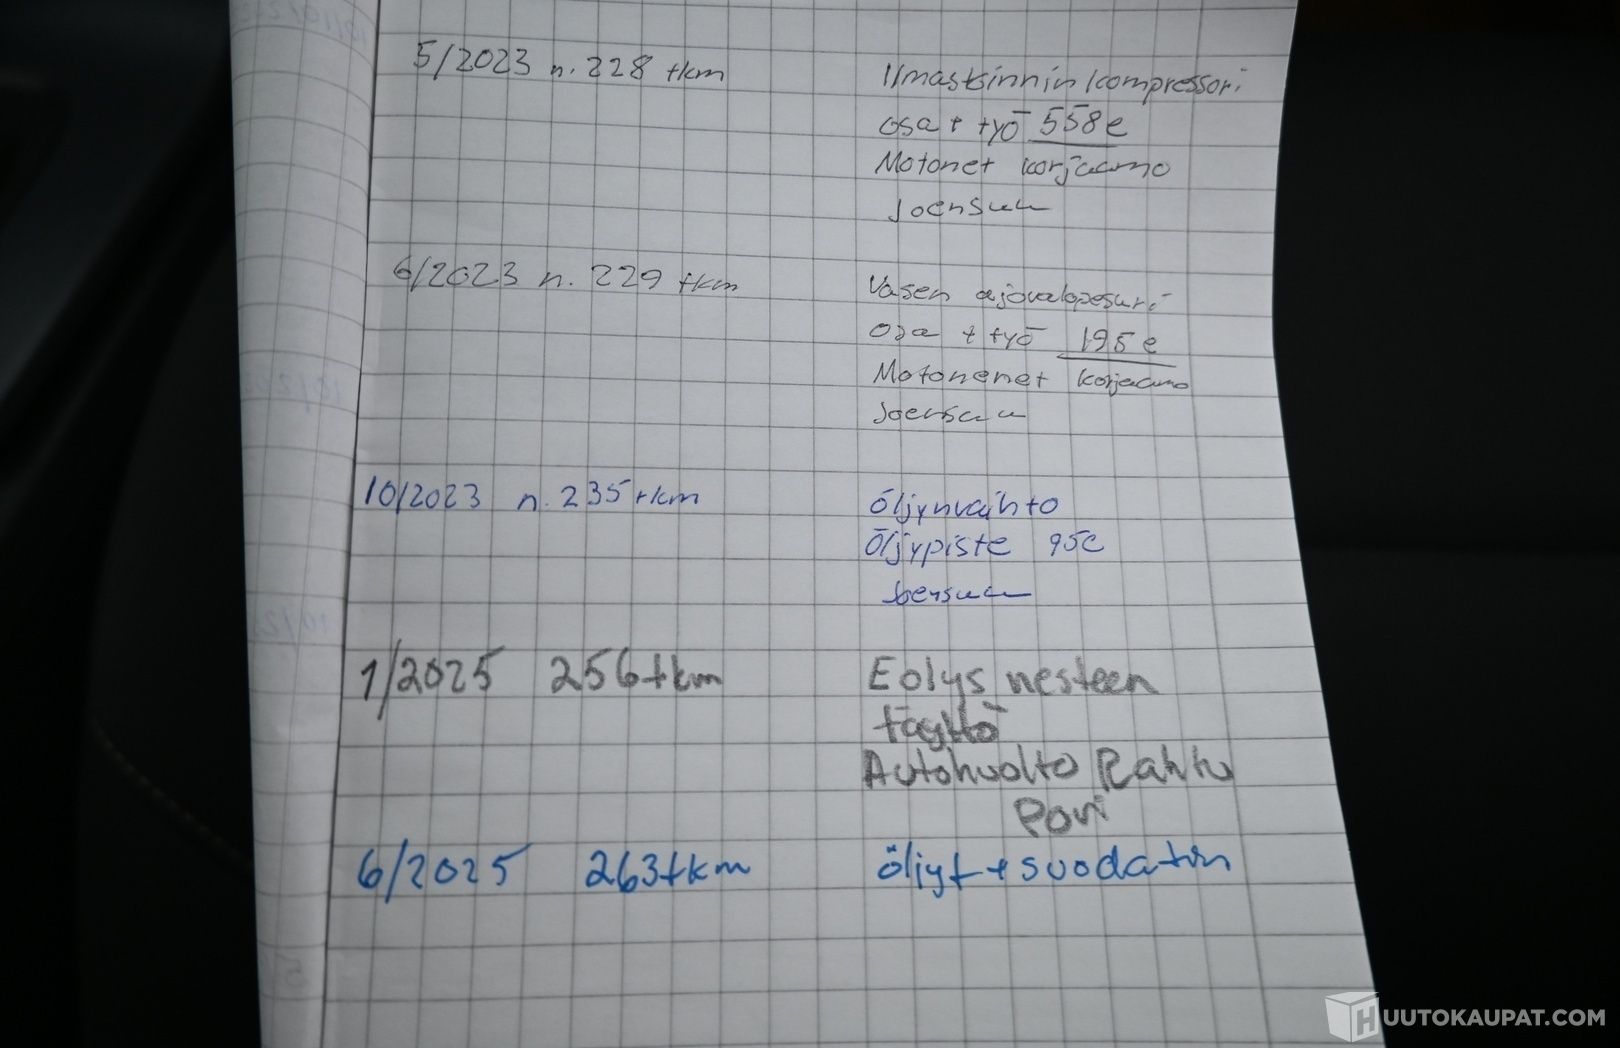 5/2023 n. 228 tkm
Ilmastoinnin kompressori
osa + työ 558e
Motonet korjaamo
Joensuu
6/2023 n. 229 tkm
Vasen ajovalopesuri
osa + työ 195 e
Motonenet korjaamo
Joensuu
10/2023 n. 235 tkm
Öljynvaihto
Öljypiste 95e
Joensuu
1/2025 256tkm
Eolys nesteen
täyttö
Autohuolto Rahtu
Pori
6/2025 263tkm
öljyt + suodatin
HUUTOKAUPAT.COM